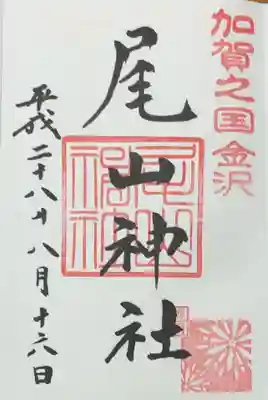 加賀之国金沢
尾山神社
平成二十八年八月十六日